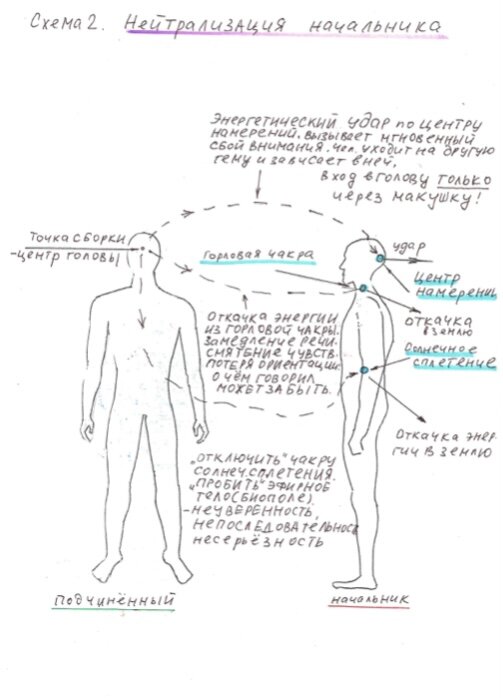 Схема 2. Нейтрализация начальника
Энергетический удар по центру
намерений. вызывает мгновенный
сбой внимания. Чел. уходит на другую
тему и зависает в ней.
вход в голову только
через макушку!
Точка сборки
-центр головы
удар
горловая чакра
Центр
намерений
откачка
в землю
Солнечное
сплетение
откачка энергии
из горловой чакры.
Замедление речи-
смятение чувств.
потеря ориентации
о чём говорил
может забыть.
Откачка энер-
гии в землю
„отключить" чакру
солнеч. сплетения.
„пробить" эфирное
тело(биополе)
-неуверенность,
непоследовательность
несерьёзность
подчинённый
начальник